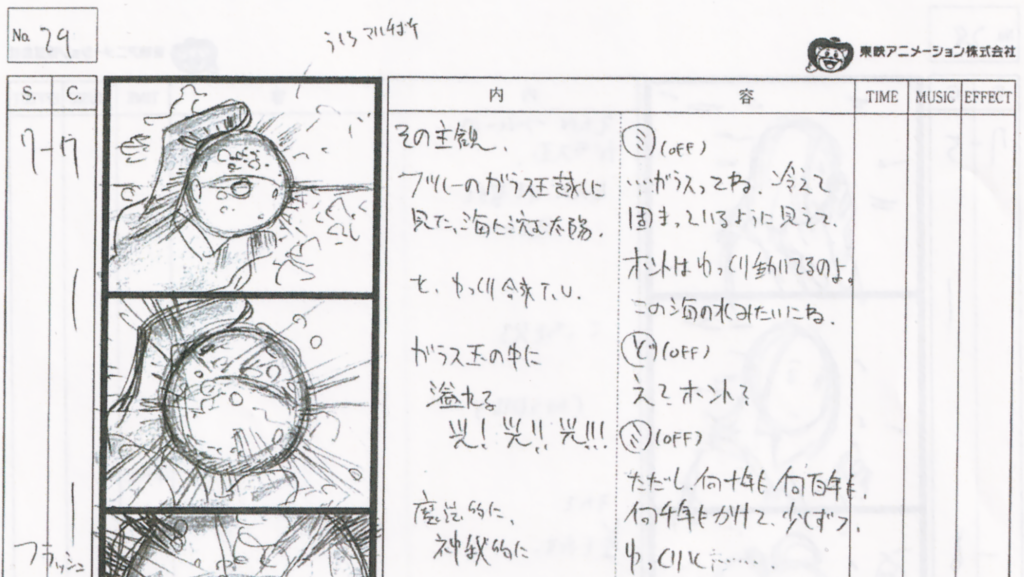 No. 29
うしろ マルチボケ
東映アニメーション株式会社
S. C. 内容 TIME MUSIC EFFECT
フラッシュ
その主観、
ブルーのガラス玉越しに
見た、海に沈む太陽。
と、ゆっくり T.U.
ガラス玉の中に
溢れる
光! 光!! 光!!!
魔法的に、
神秘的に
ミ (OFF)
…ガラスってね、冷えて
固まっているように見えて、
ホントはゆっくり動いてるのよ。
この海の水みたいにね。
ど (OFF)
えてホント?
ミ (OFF)
ただし、何十年も何百年も、
何千年もかけて、少しずつ、
ゆっくりと……